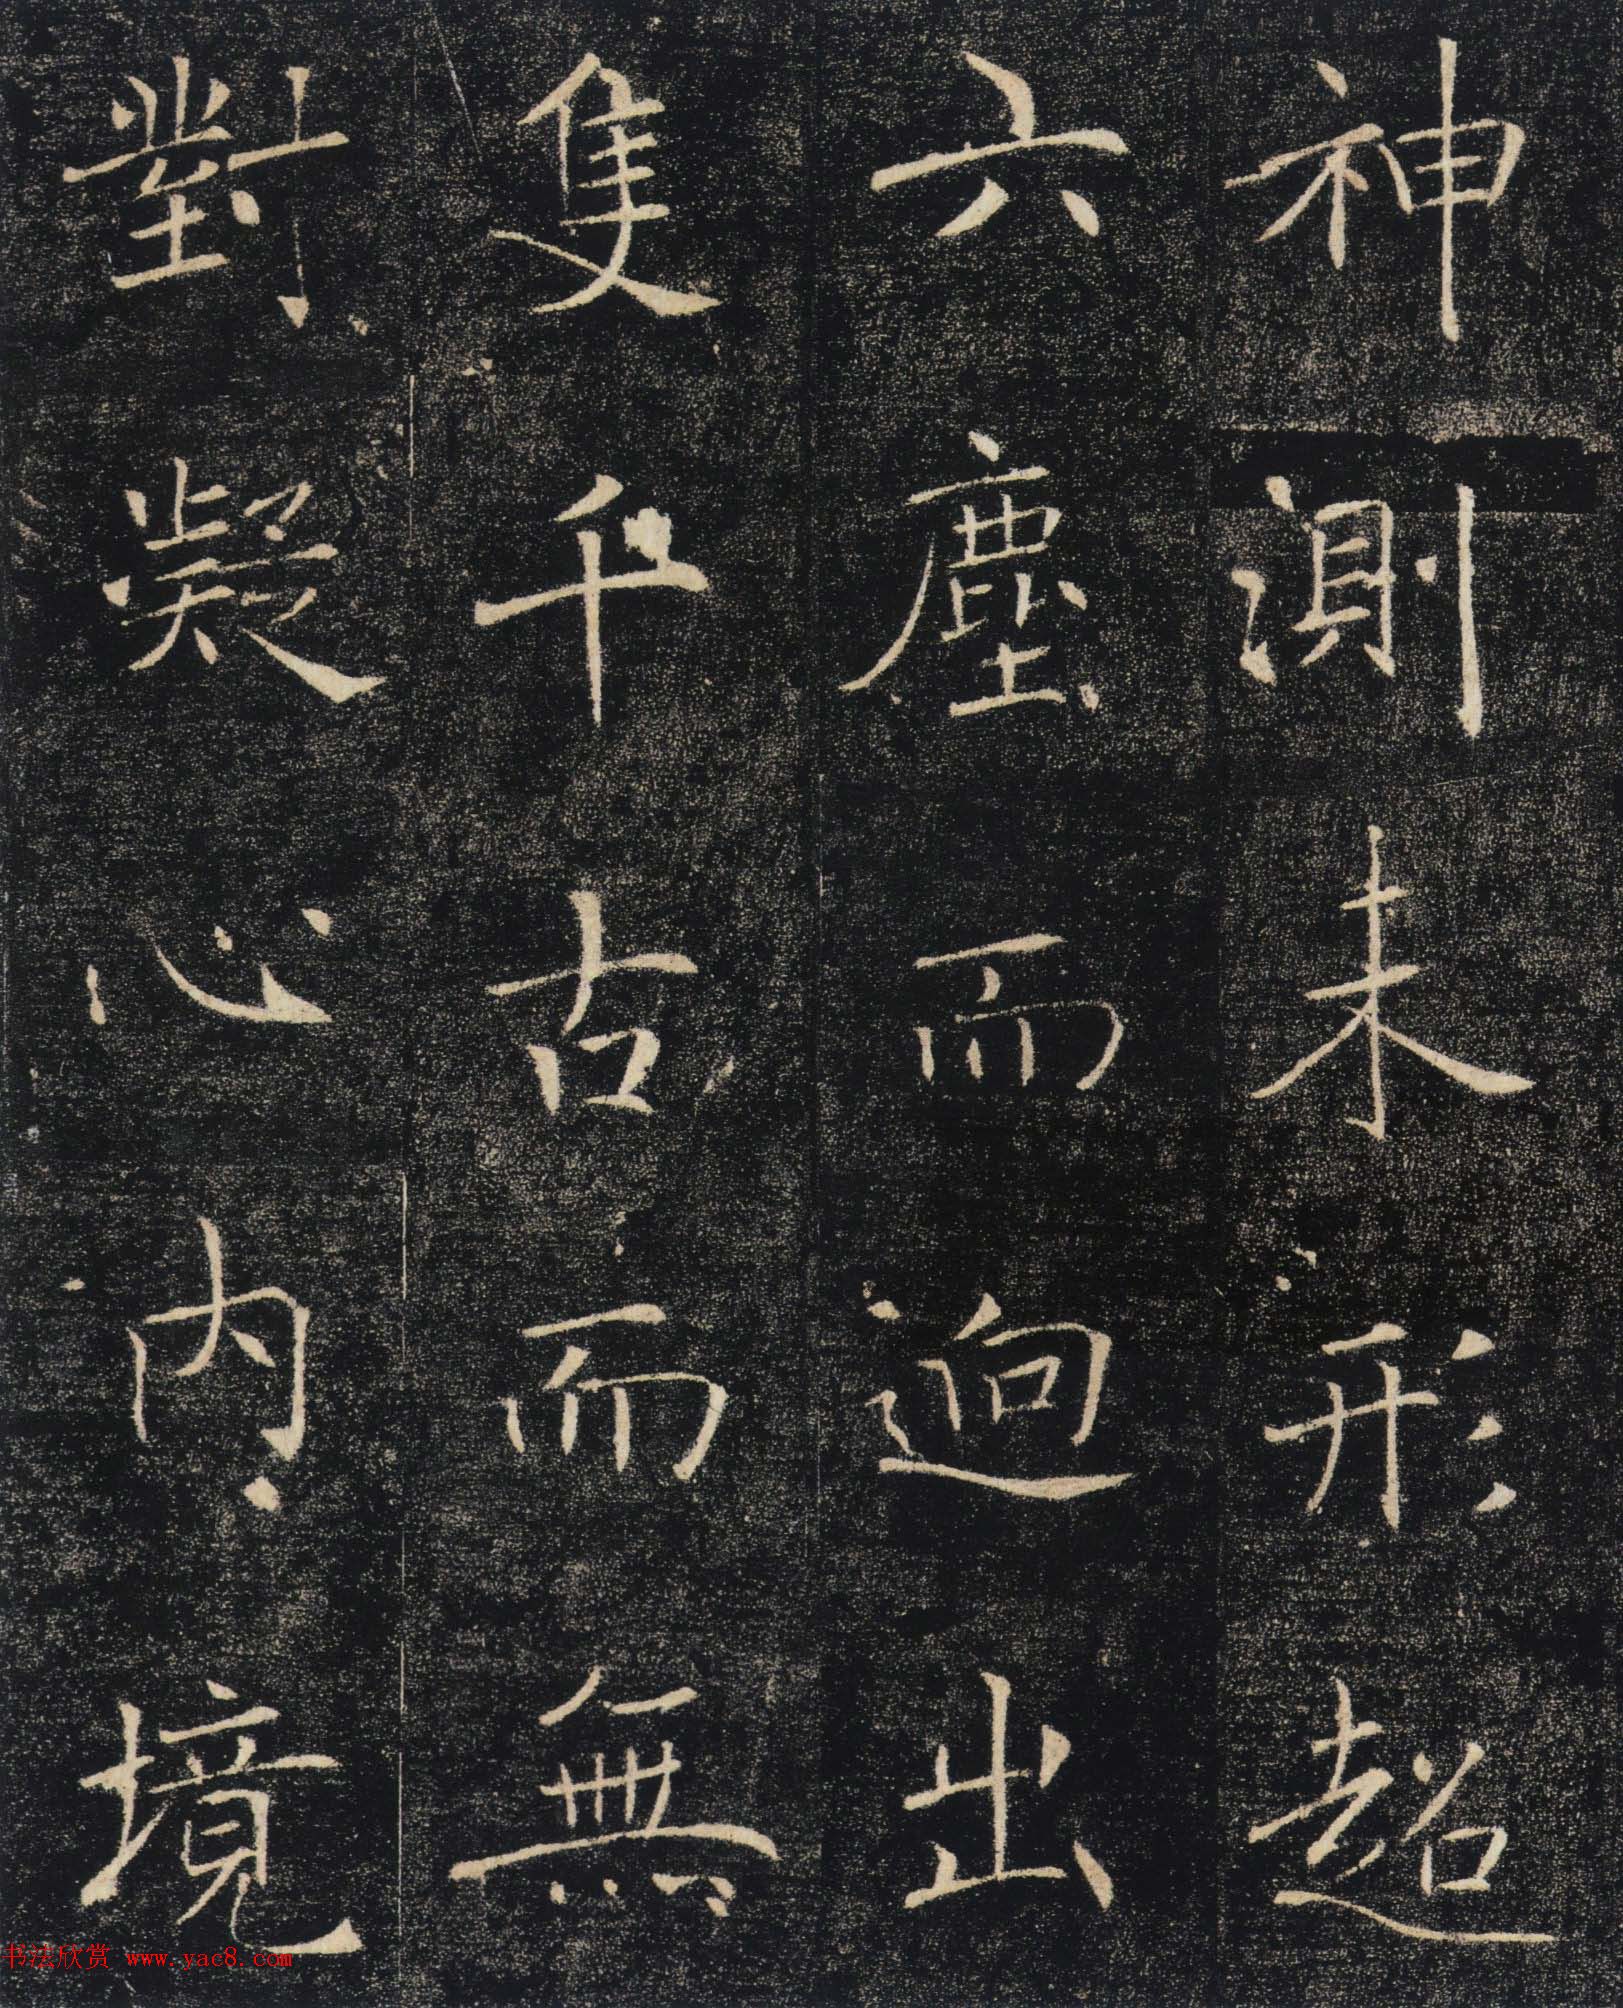 神測未形超
六塵而迥出
隻千古而無
對凝心内境
书法欣赏 www.yac8.com